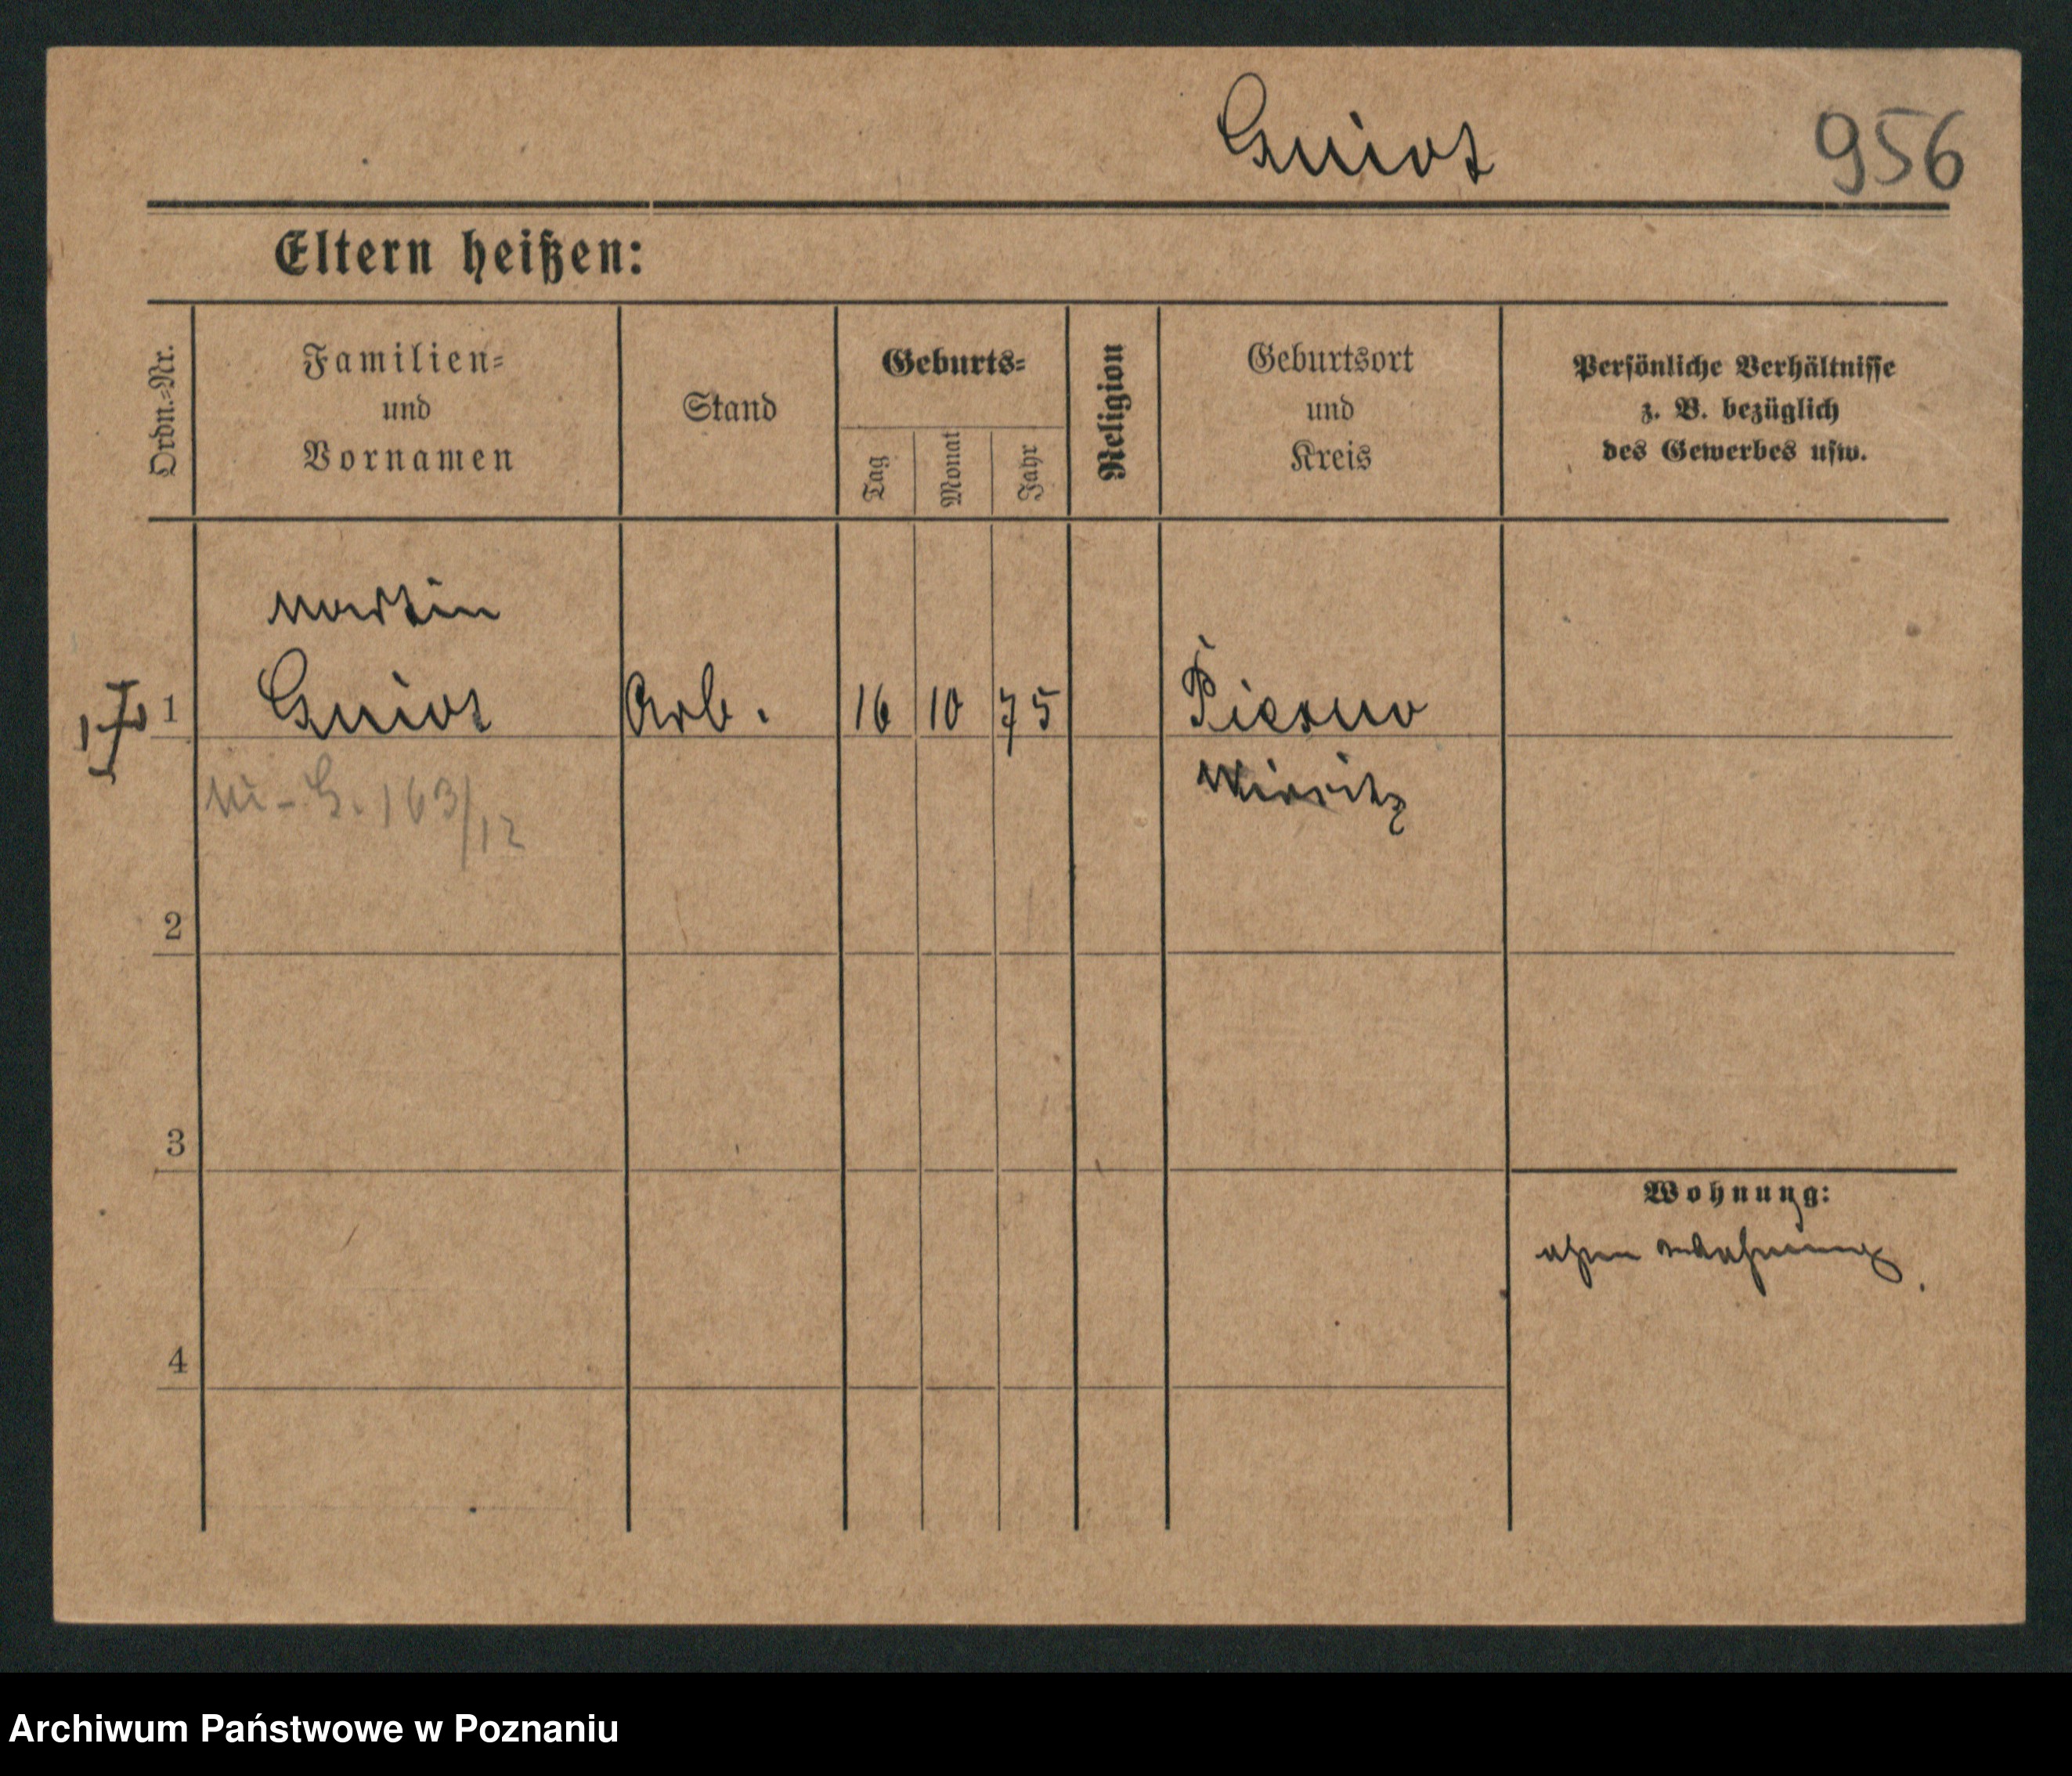 Gniot
956
Eltern heißen:
Ordn.-Nr.
Familien-
und
Vornamen
Stand
Geburts-
Tag
Monat
Jahr
Religion
Geburtsort
und
Kreis
Persönliche Verhältnisse
z. B. bezüglich
des Gewerbes usw.
Martin
1
Gniot
Arb.
16
10
75
163/12
2
3
Wohnung:
ohne Wohnung.
4
Archiwum Państwowe w Poznaniu